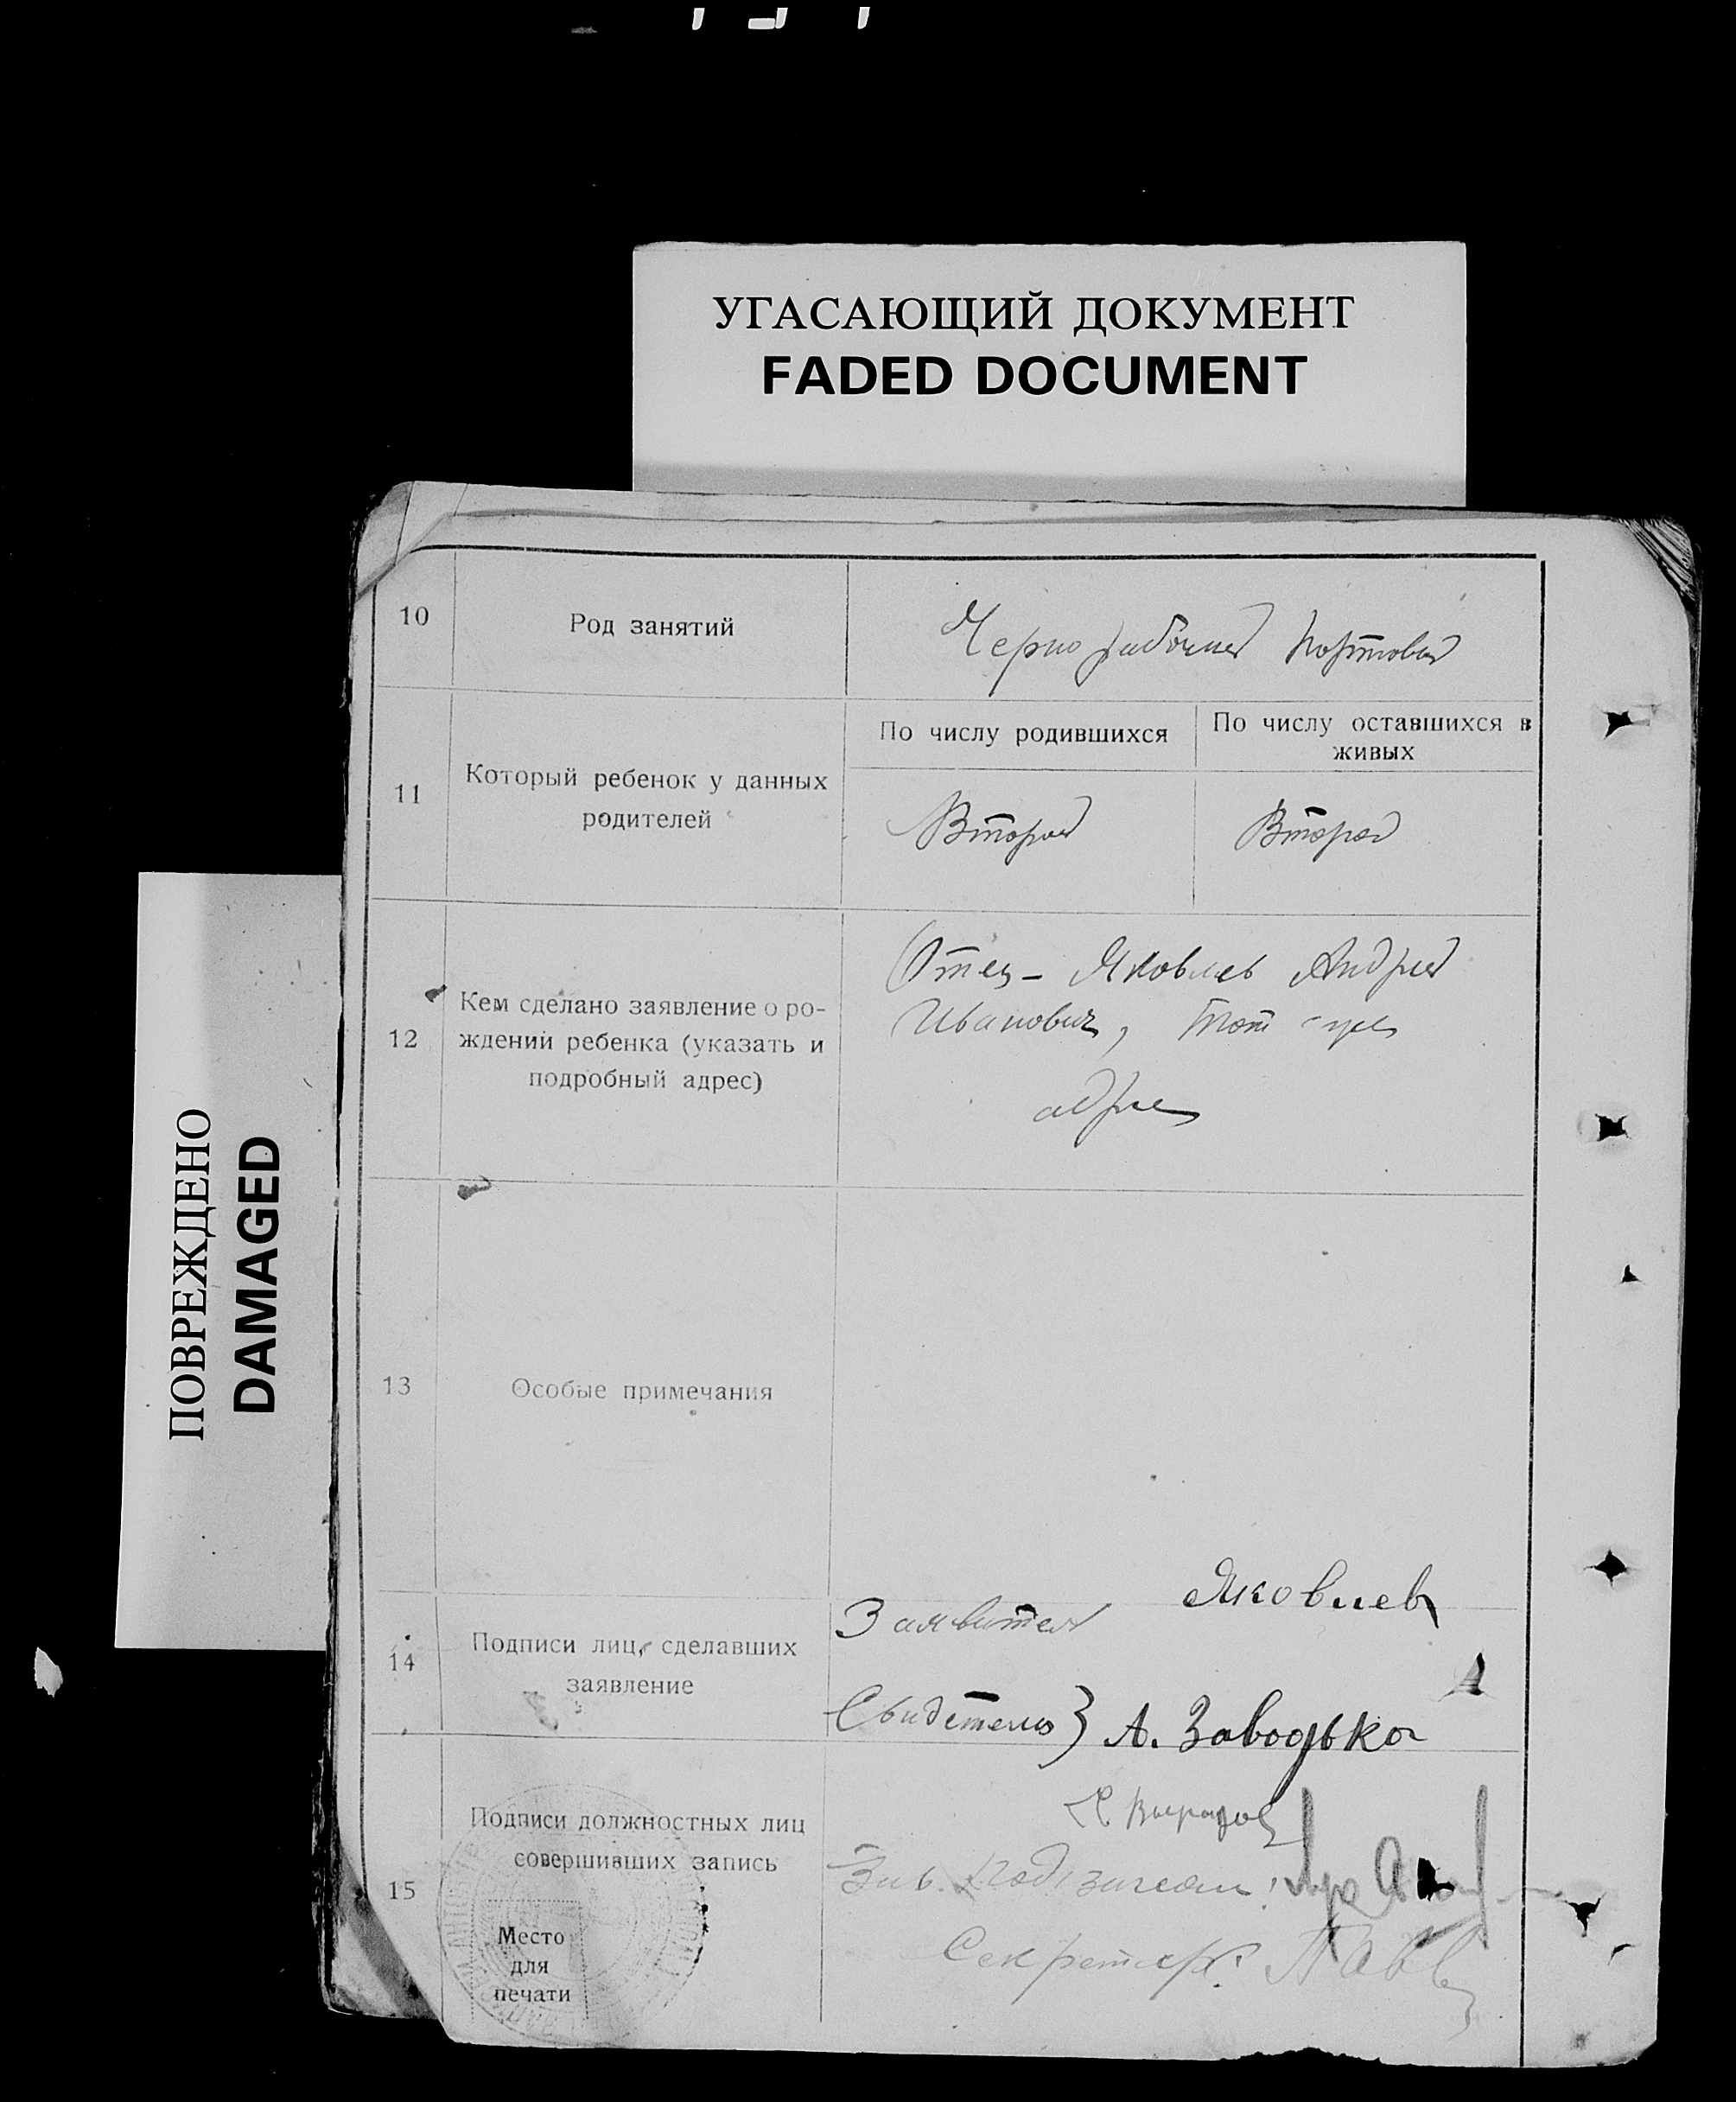 УГАСАЮЩИЙ ДОКУМЕНТ
FADED DOCUMENT
ПОВРЕЖДЕНО
DAMAGED
10
Род занятий
Чернорабочий портовый
11
Который ребенок у данных
родителей
По числу родившихся
По числу оставшихся в
живых
Второй
Второй
12
Кем сделано заявление о ро-
ждении ребенка (указать и
подробный адрес)
Отец - Яковлев Андрей
Иванович, тот же
адрес
13
Особые примечания
14
Подписи лиц, сделавших
заявление
Заявител
Яковлев
Свидетели} А. Заводько
15
Подписи должностных лиц
совершивших запись
Место
для
печати
Зав.
Секретарь: